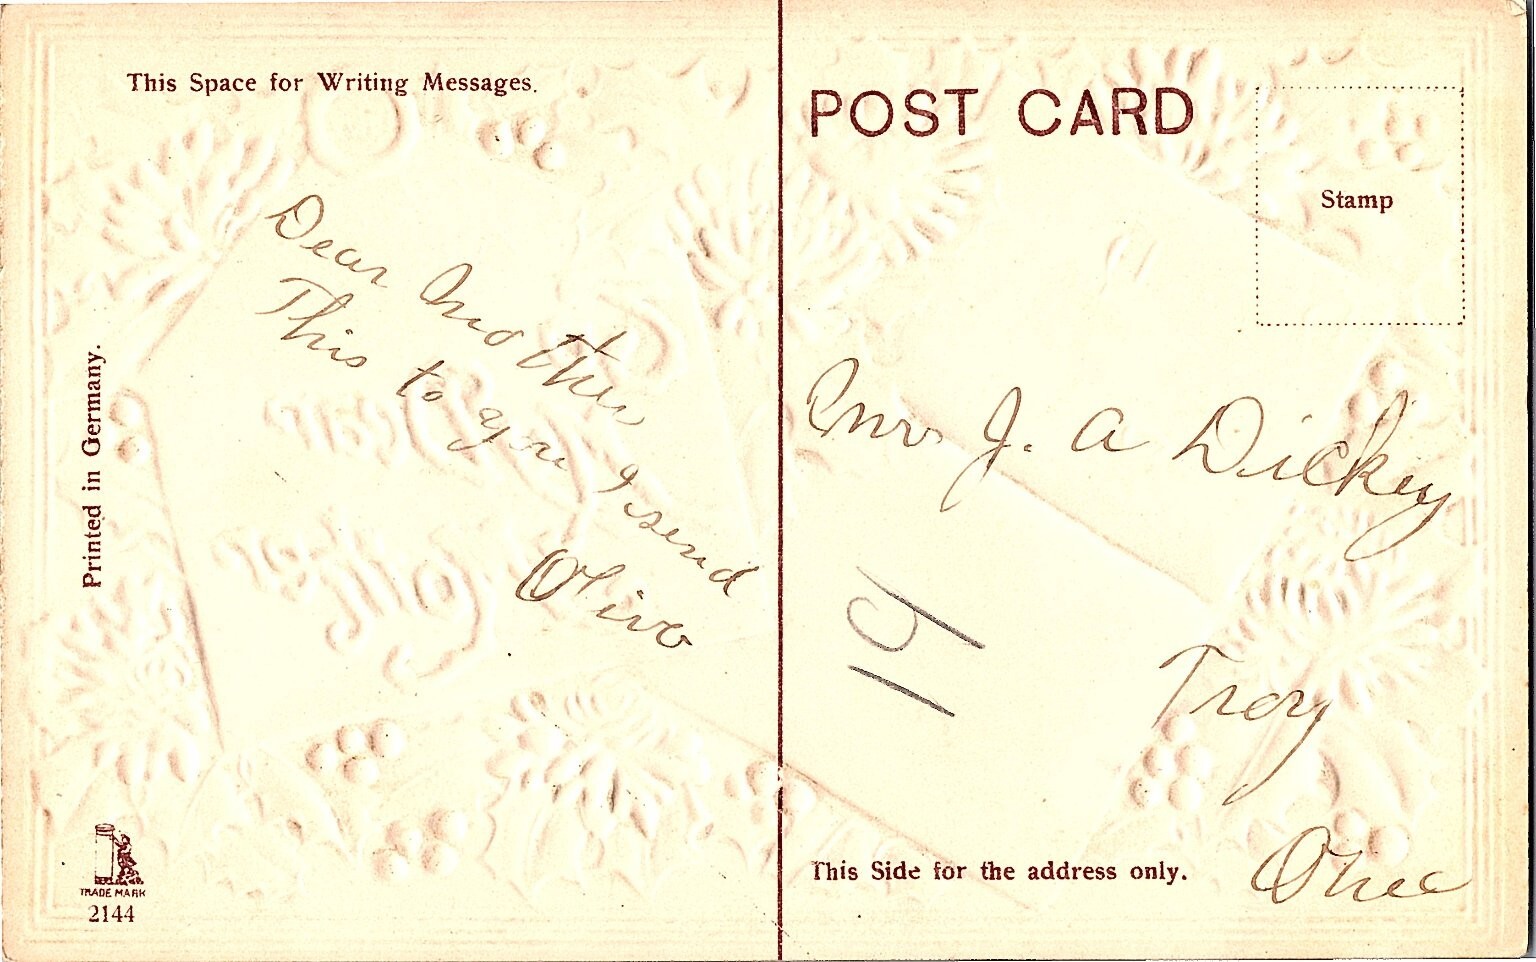 This Space for Writing Messages.
Dear Mother
This to you I send
Olive
Printed in Germany.
TRADE MARK
2144
POST CARD
Stamp
Mrs J. A Dickey
Troy
Ohio
This Side for the address only.